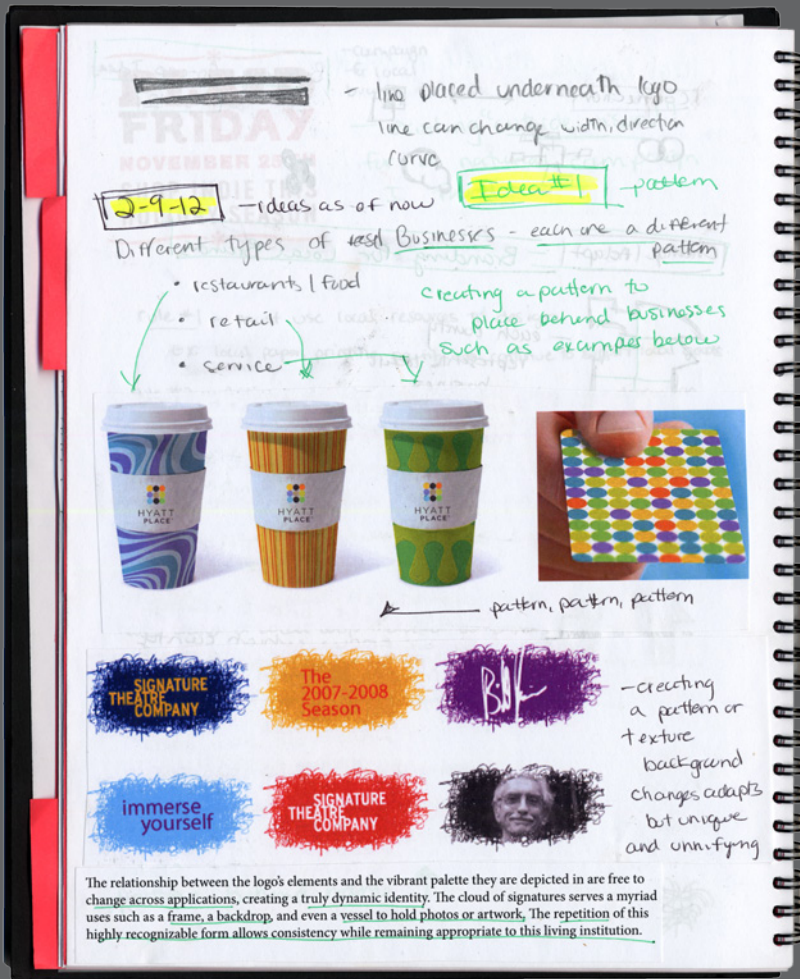 - line placed underneath logo
line can change width, direction
curve
2-9-12 - ideas as of now
Idea #1 - pattern
Different types of Businesses - each one a different
pattern
• restaurants / food
• retail
• service
creating a pattern to
place behind businesses
such as examples below
HYATT
PLACE
HYATT
PLACE
HYATT
PLACE
pattern, pattern, pattern
SIGNATURE
THEATRE
COMPANY
The
2007-2008
Season
immerse
yourself
SIGNATURE
THEATRE
COMPANY
- creating
a pattern or
texture
background
changes adapts
but unique
and unnifying
The relationship between the logo's elements and the vibrant palette they are depicted in are free to
change across applications, creating a truly dynamic identity. The cloud of signatures serves a myriad
uses such as a frame, a backdrop, and even a vessel to hold photos or artwork. The repetition of this
highly recognizable form allows consistency while remaining appropriate to this living institution.
FRIDAY